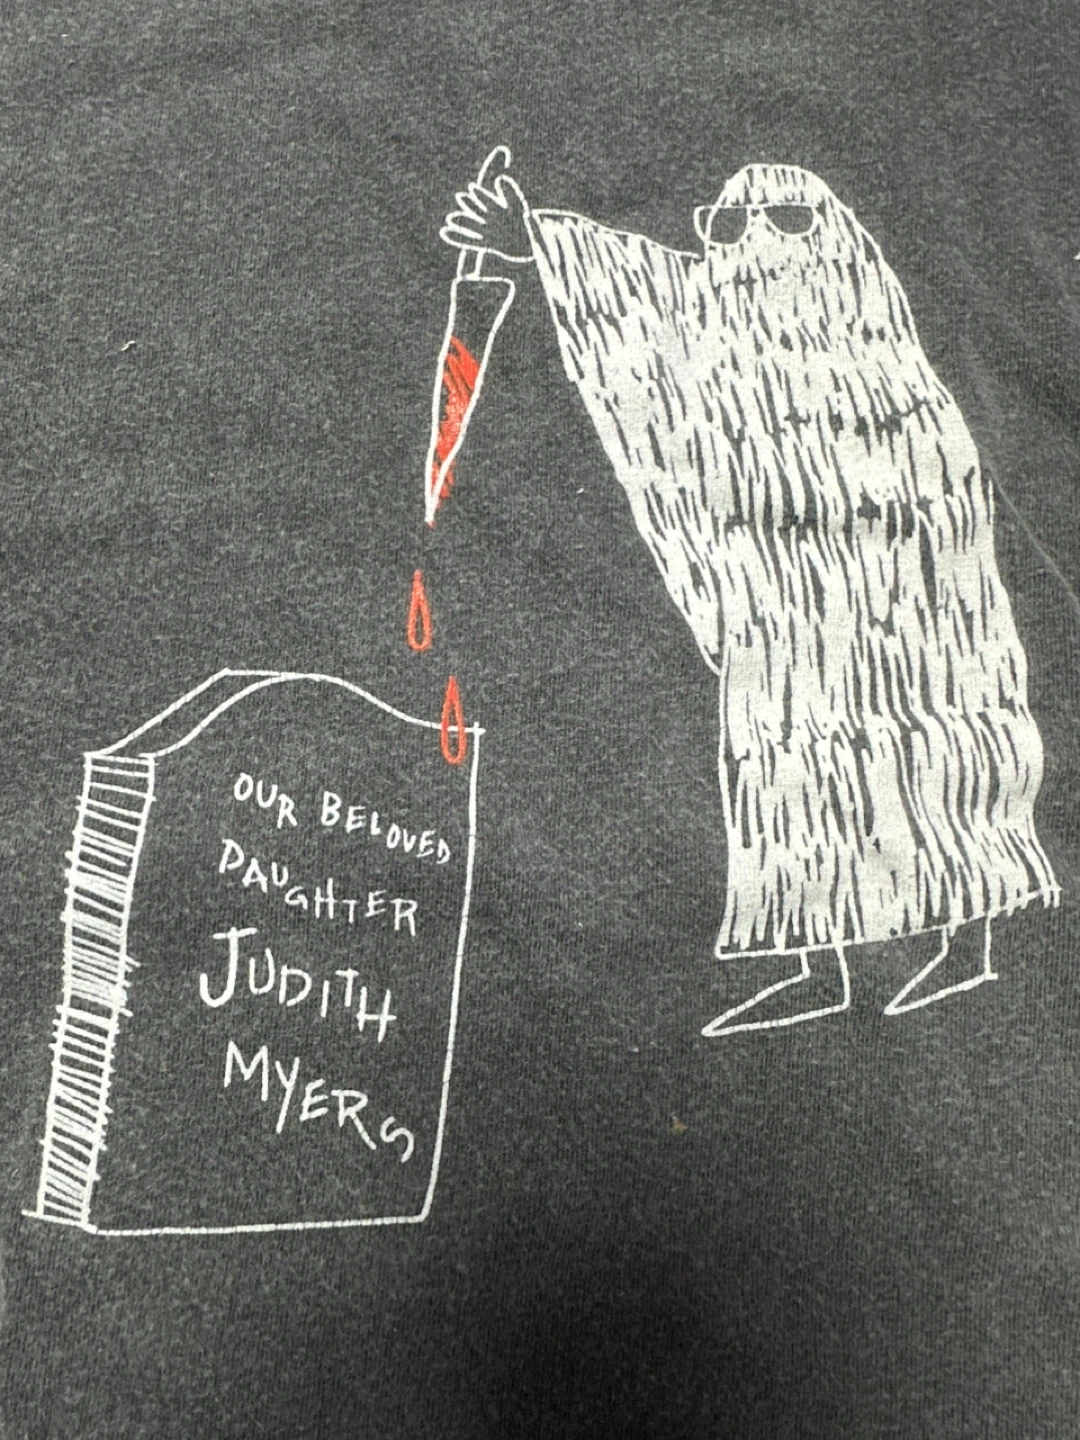 OUR BELOVED
DAUGHTER
JUDITH
MYERS